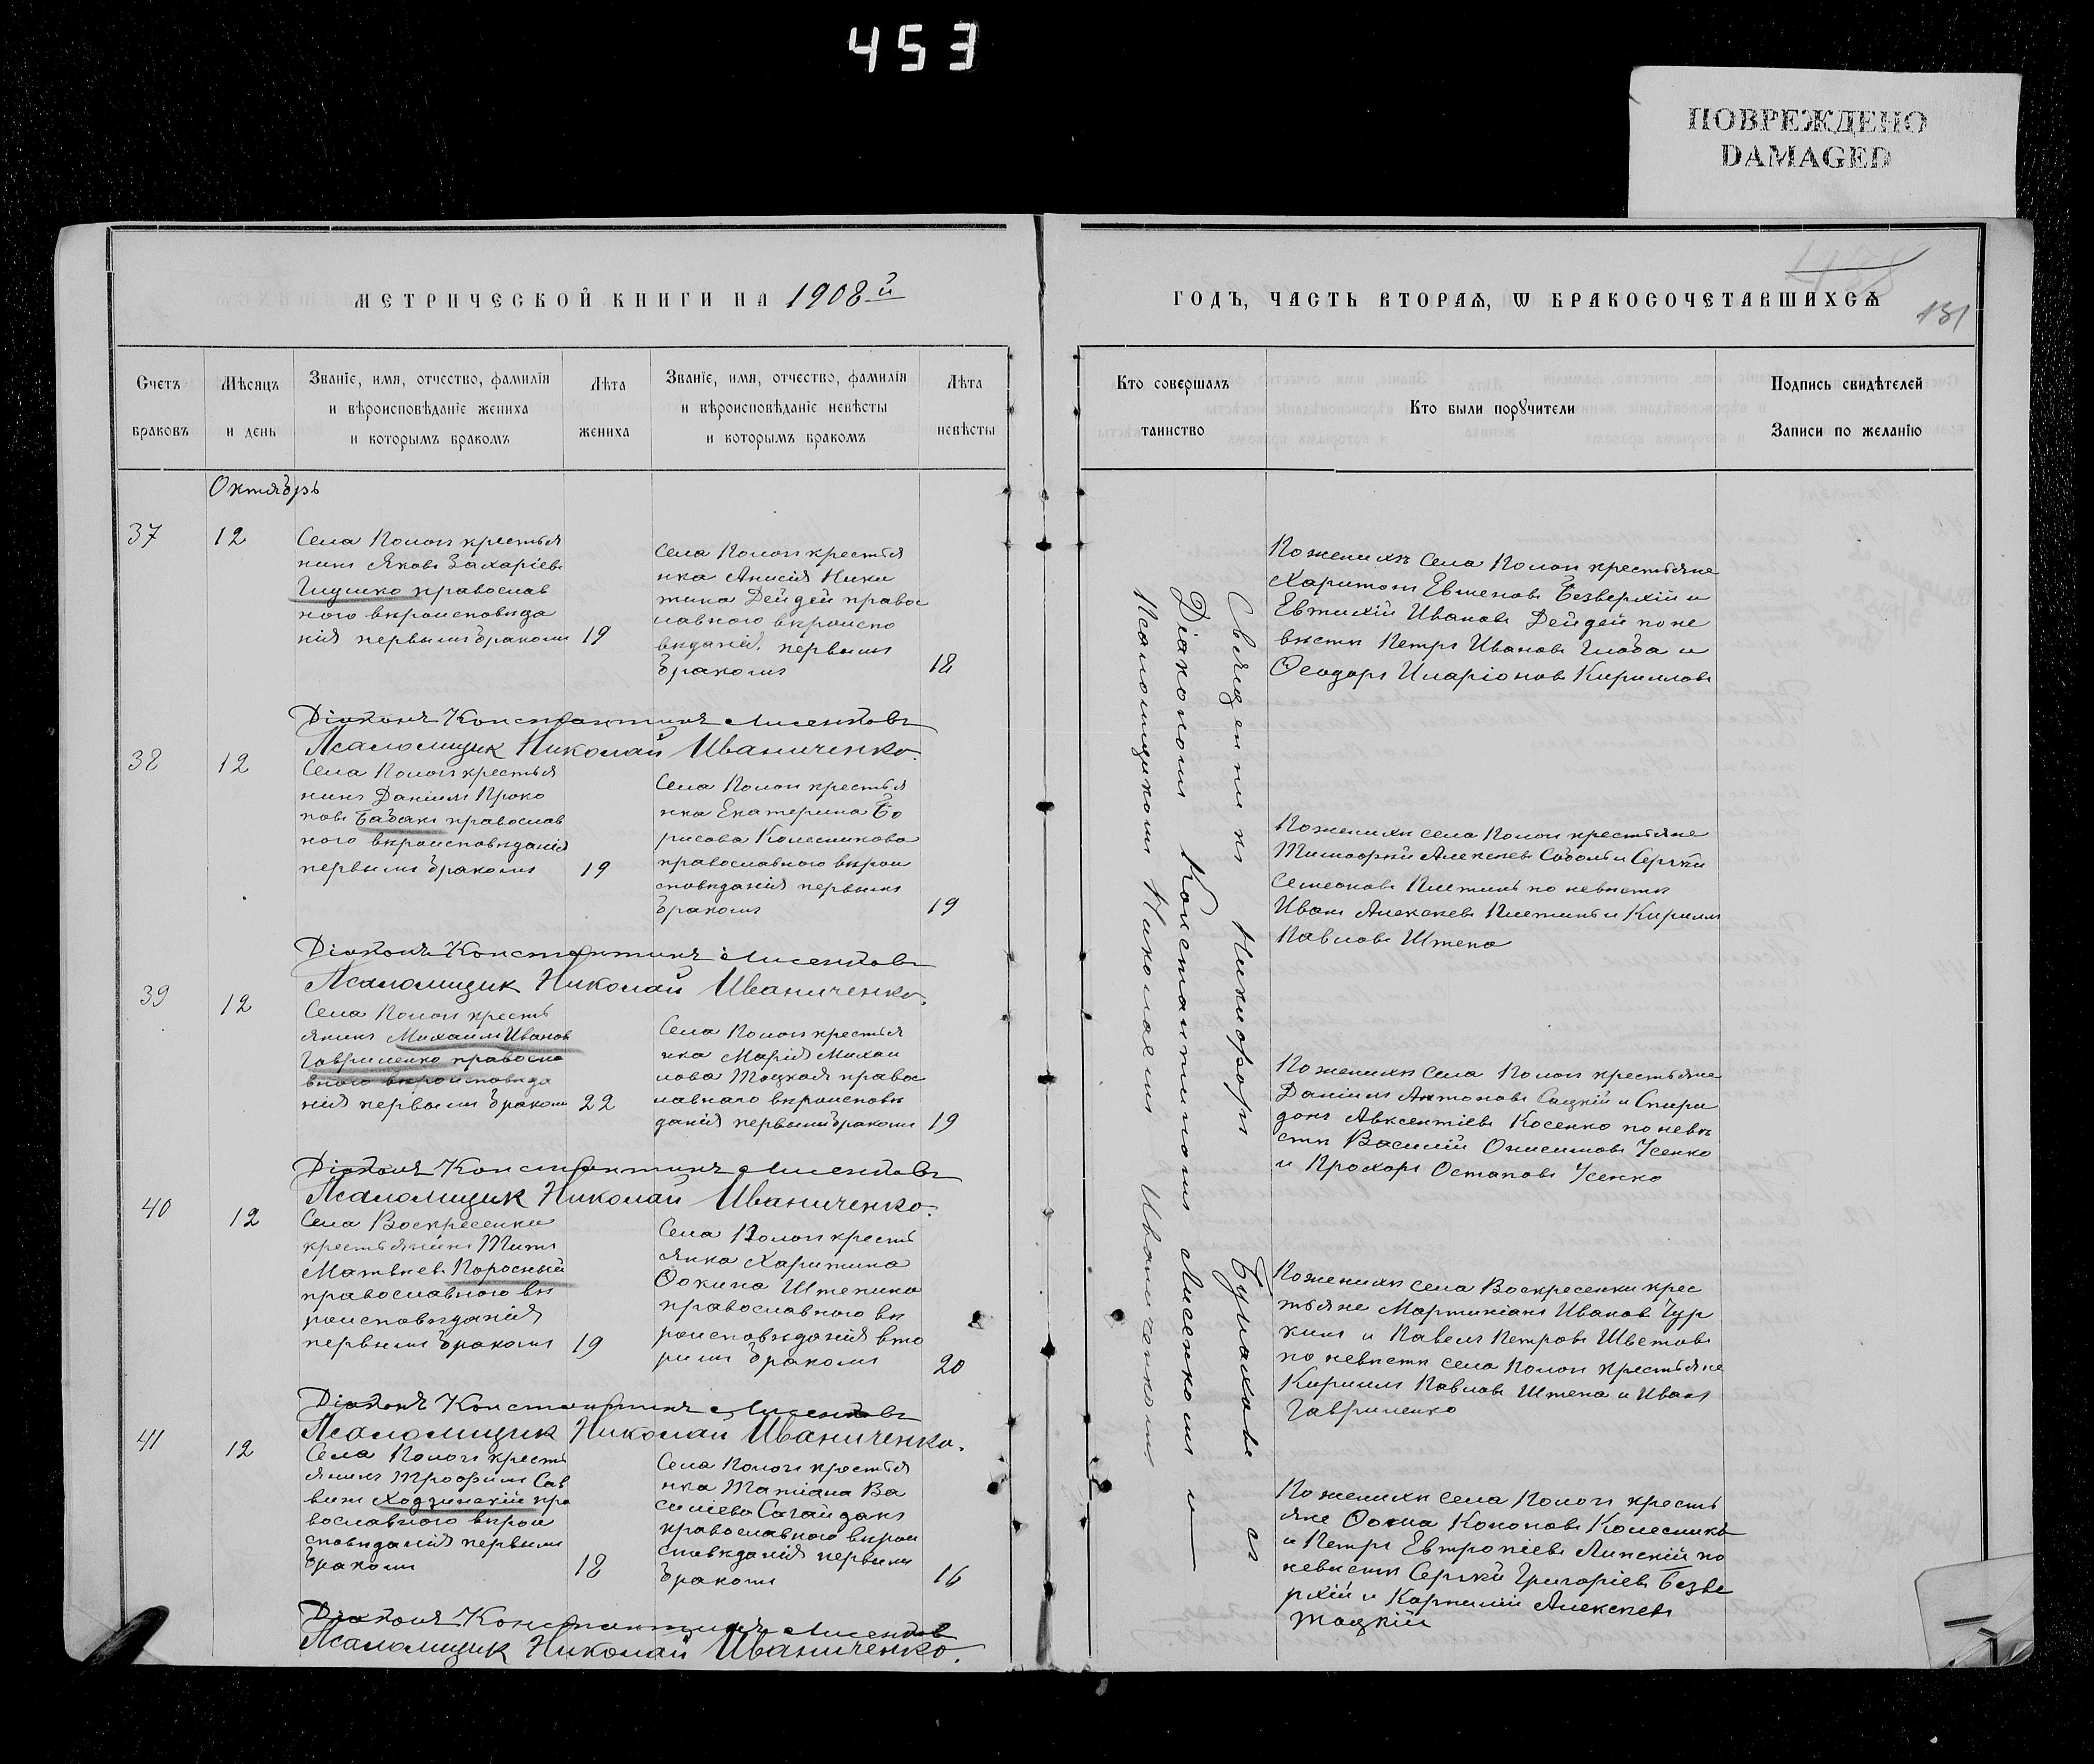 453
ПОВРЕЖДЕНО
DAMAGED
МЕТРИЧЕСКОЙ КНИГИ НА 1908й
ГОДЪ, ЧАСТЬ ВТОРАЯ, Ѡ БРАКОСОЧЕТАВШИХСЯ
131
Счетъ
браковъ
Мѣсяцъ
и день
Званіе, имя, отчество, фамилія
и вѣроисповѣданіе жениха
и которымъ бракомъ
Лѣта
жениха
Званіе, имя, отчество, фамилія
и вѣроисповѣданіе невѣсты
и которымъ бракомъ
Лѣта
невѣсты
Кто совершалъ
таинство
Кто были поручители
Подпись свидѣтелей
Записи по желанію
Октябрь
37
12
Села Попогъ крестья
нинъ Яковъ Захаріевъ
Глушко православ
ного вѣроисповѣда
нія первымъ бракомъ
19
Села Попогъ крестья
нка Анисія Ники
тина Дейдей правос
лавного вѣроиспо
вѣданія, первымъ
бракомъ
18
По женихѣ села Попогъ крестьяне
Харитонъ Евменовъ Безверхій и
Евтихій Ивановъ Дейдей по не
вѣстѣ Петръ Ивановъ Глоба и
Ѳеодоръ Иларіоновъ Кирилловъ
Діаконъ Константинъ Лисенковъ
Псаломщик Николай Иваниченко.
38
12
Села Попогъ крестья
нинъ Даніилъ Проко
повъ Бабакъ православ
ного вѣроисповѣданія
первымъ бракомъ
19
Села Попогъ крестья
нка Екатерина Бо
рисова Колесникова
православного вѣрои
сповѣданія первымъ
бракомъ
19
По женихѣ села Попогъ крестьяне
Тимоѳей Алексѣевъ Соболь и Сергѣй
Семеоновъ Плетинь по невѣстѣ
Иванъ Алексѣевъ Плетинь и Кириллъ
Павловъ Штепа
Діаконъ Константинъ Лисенковъ
Псаломщик Николай Иваниченко.
39
12
Села Попогъ кресть
янинъ Михаилъ Ивановъ
Гавриленко правосла
вного вѣроисповѣда
нія первымъ бракомъ
22
Села Попогъ крестья
нка Марія Михаи
лова Тоцкая правос
лавнаго вѣроисповѣ
данія первымъ бракомъ
19
По женихѣ села Попогъ крестьяне
Даніилъ Антоновъ Сацкій и Спири
донъ Авксентіевъ Косенко по невѣ
стѣ Василій Онисимовъ Усенко
и Прохоръ Остаповъ Усенко
Діаконъ Константинъ Лисенковъ
Псаломщик Николай Иваниченко.
40
12
Села Воскресенки
крестьянинъ Титъ
Матвѣевъ Поросный
православного вѣ
роисповѣданія
первымъ бракомъ
19
Села Попогъ кресть
янка Харитина
Ѳокина Штепина
православного вѣ
роисповѣданія вто
рымъ бракомъ
20
По женихѣ села Воскресенки крес
тьяне Мартиніанъ Ивановъ Чур
кинъ и Павелъ Петровъ Шветовъ
по невѣстѣ села Попогъ крестьяне
Кириллъ Павловъ Штепа и Иванъ
Гавриленко
Діаконъ Константинъ Лисенковъ
Псаломщик Николай Иваниченко.
41
12
Села Попогъ кресть
янинъ Трофимъ Сав
винъ Ходзинскій пра
вославного вѣрои
сповѣданія первымъ
бракомъ
18
Села Попогъ крестья
нка Татіана Ва
силіева Сагайдакъ
православного вѣрои
сповѣданія первымъ
бракомъ
16
По женихѣ села Попогъ кресть
яне Ѳома Кононовъ Колесниковъ
и Петръ Евтропіевъ Липскій по
невѣстѣ Сергѣй Григоріевъ Безве
рхій и Корнилій Алексѣевъ
Тоцкій
Діаконъ Константинъ Лисенковъ
Псаломщик Николай Иваниченко.
Священникъ Никифоръ съ
Діакономъ Константиномъ Лисенкомъ и
Псаломщикомъ Николаемъ Иваниченкомъ